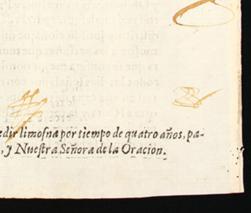 edir limosna por tiempo de quatro años, pa-
, y Nuestra Señora de la Oracion.